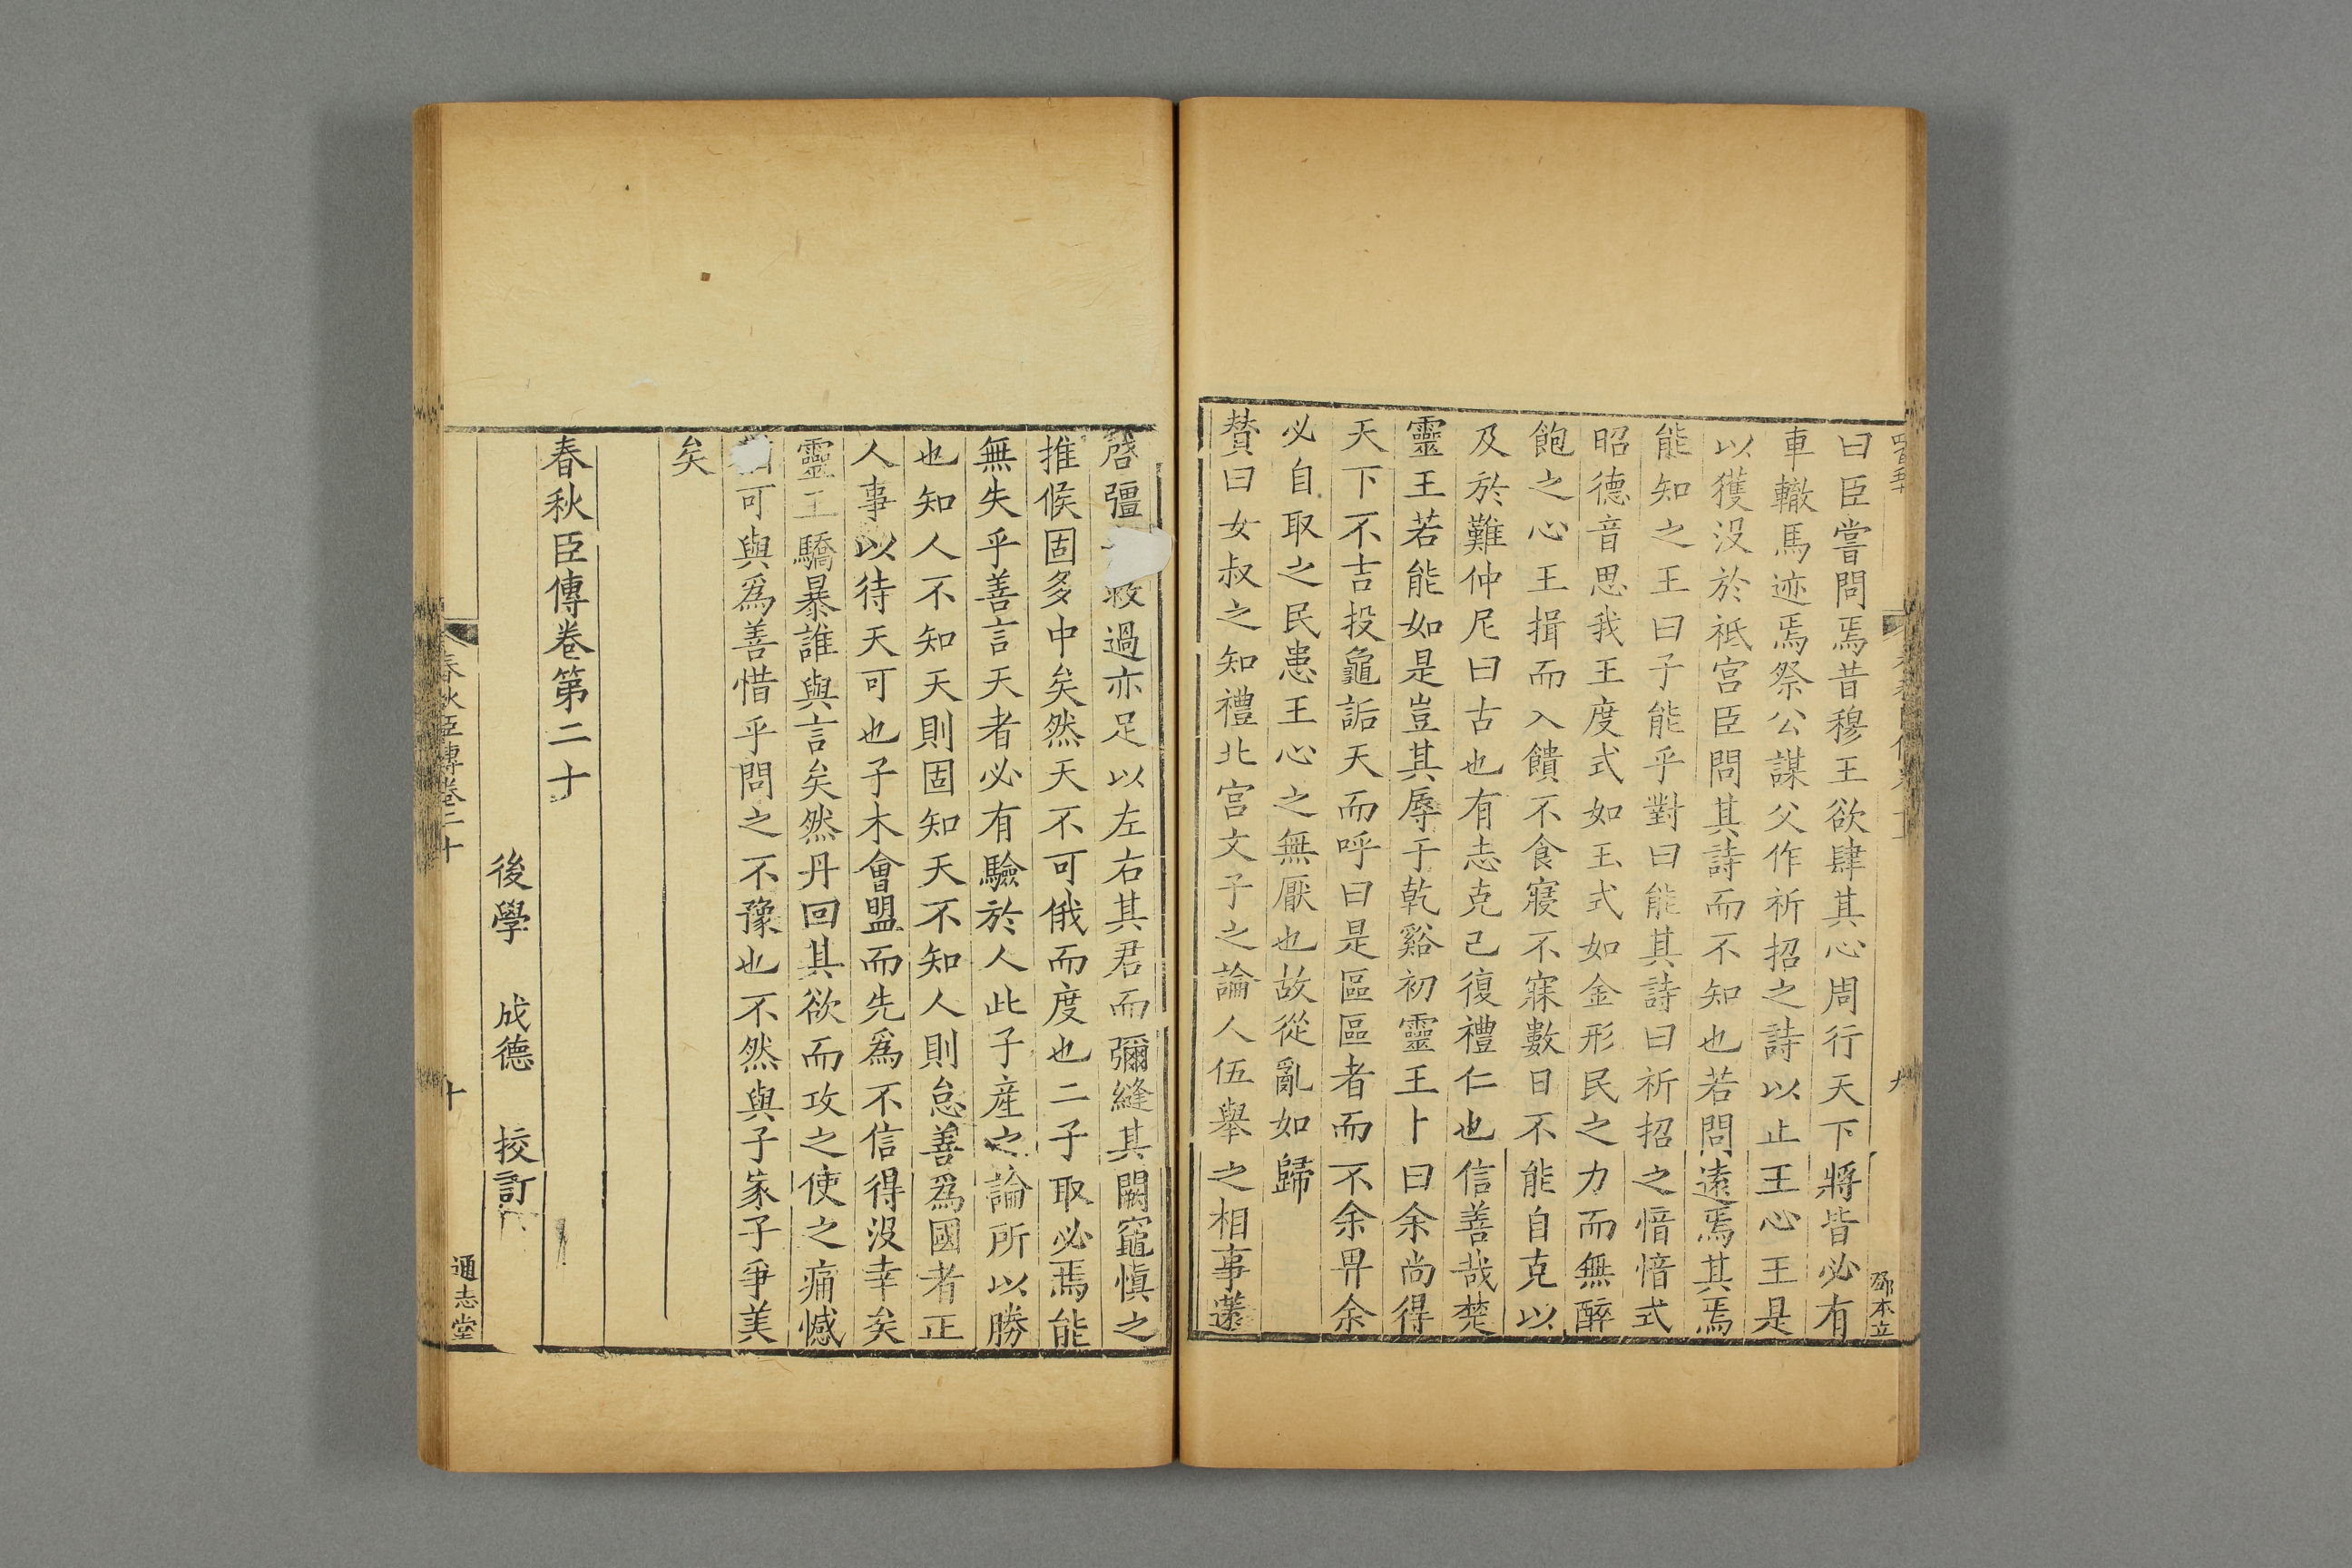 曰臣嘗問焉昔穆王欲肆其心周行天下將皆必有
車轍馬迹焉祭公謀父作祈招之詩以止王心王是
以獲没於祗宮臣問其詩而不知也若問遠焉其焉
能知之王曰子能乎對曰能其詩曰祈招之愔愔式
昭德音思我王度式如玉式如金形民之力而無醉
飽之心王揖而入饋不食寢不寐數日不能自克以
及於難仲尼曰古也有志克己復禮仁也信善哉楚
靈王若能如是豈其辱于乾谿初靈王卜曰余尚得
天下不吉投龜詬天而呼曰是區區者而不余畀余
必自取之民患王心之無厭也故從亂如歸
贊曰女叔之知禮北宮文子之論人伍舉之相事薳
九
鄧本立
啓彊救過亦足以左右其君而彌縫其闕竈慎之
推候固多中矣然天不可俄而度也二子取必焉能
無失乎善言天者必有驗於人此子産之論所以勝
也知人不知天則固知天不知人則怠善爲國者正
人事以待天可也子木會盟而先爲不信得没幸矣
靈王驕暴誰與言矣然丹回其欲而攻之使之痛憾
可與爲善惜乎問之不豫也不然與子家子爭美
矣
春秋臣傳卷第二十
後學 成德 挍訂
春秋臣傳卷二十
十
通志堂